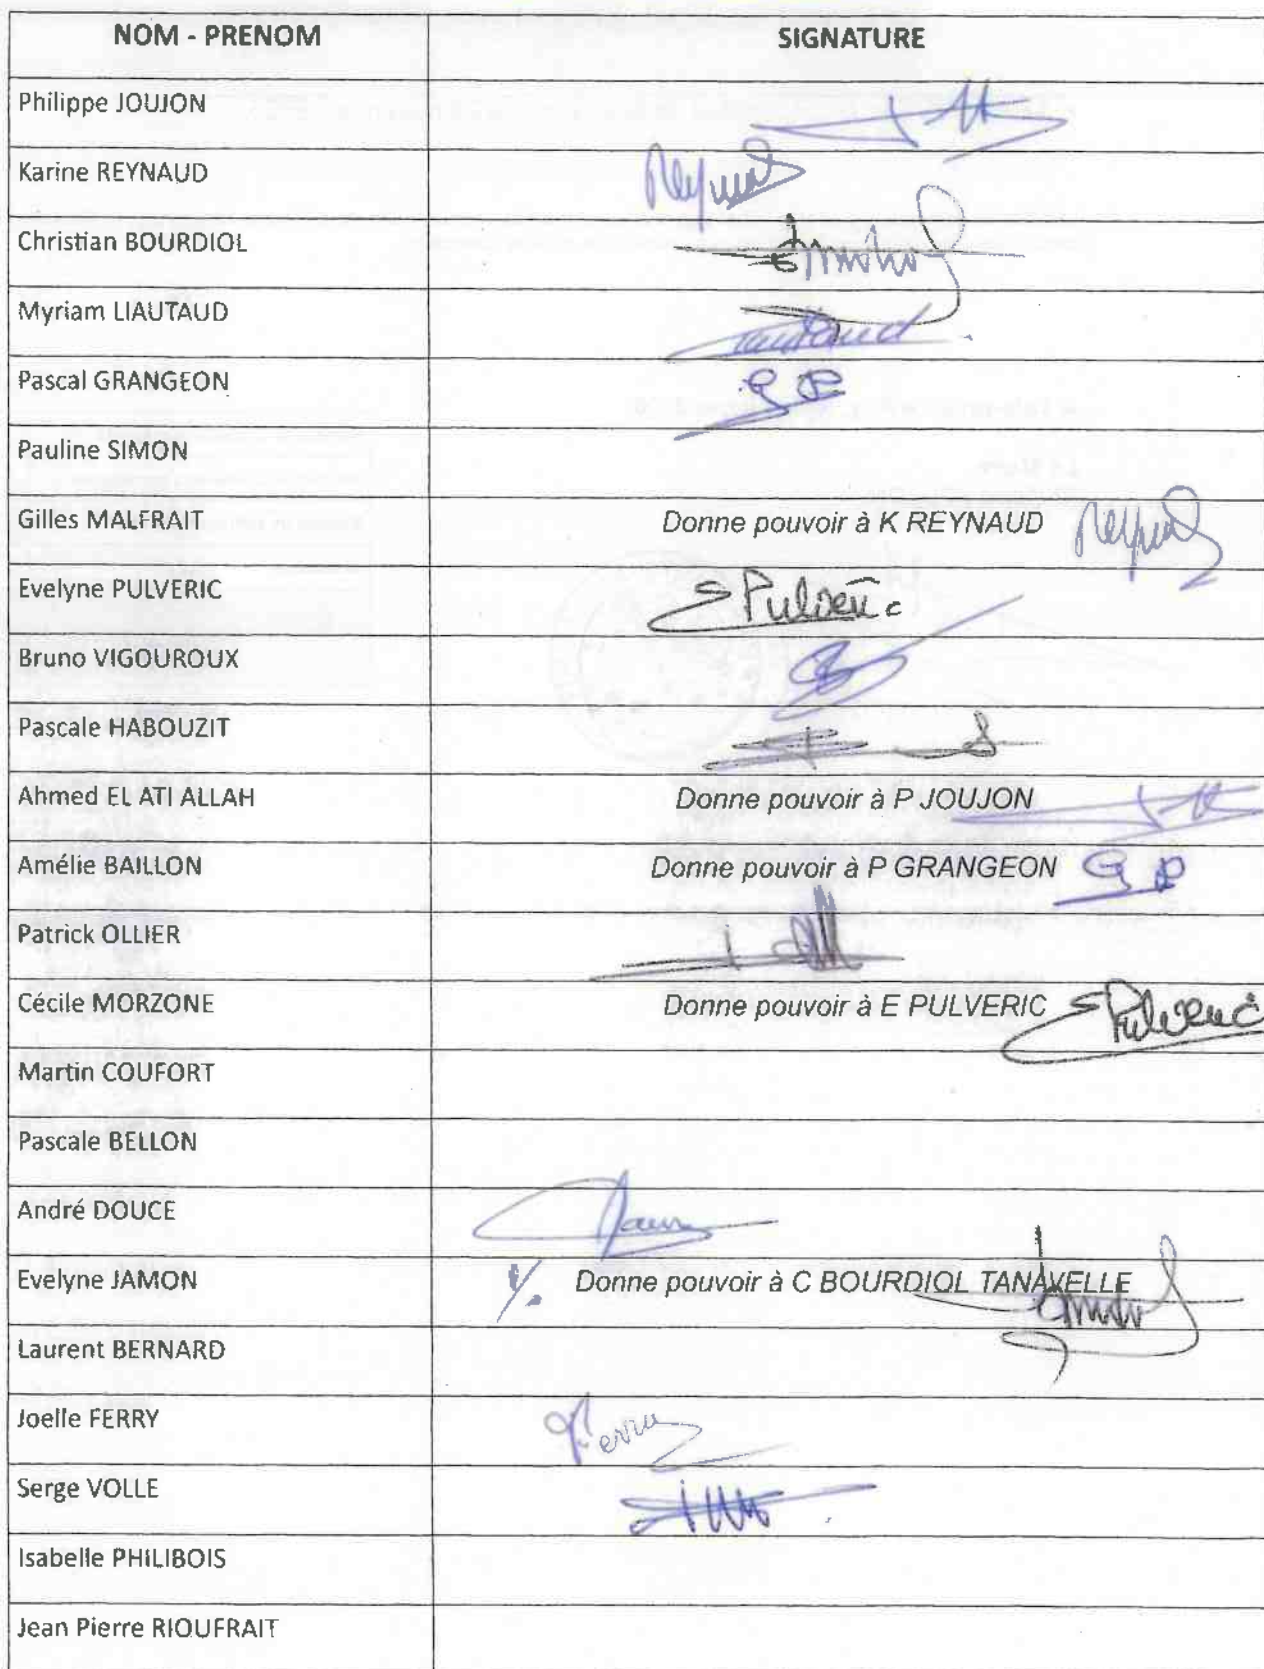 NOM - PRENOM SIGNATURE
Philippe JOUJON
Karine REYNAUD Reynaud
Christian BOURDIOL
Myriam LIAUTAUD
Pascal GRANGEON G P
Pauline SIMON
Gilles MALFRAIT Donne pouvoir à K REYNAUD Reynaud
Evelyne PULVERIC E Pulveric
Bruno VIGOUROUX
Pascale HABOUZIT
Ahmed EL ATI ALLAH Donne pouvoir à P JOUJON
Amélie BAILLON Donne pouvoir à P GRANGEON G P
Patrick OLLIER
Cécile MORZONE Donne pouvoir à E PULVERIC E Pulveric
Martin COUFORT
Pascale BELLON
André DOUCE
Evelyne JAMON Donne pouvoir à C BOURDIOL TANAVELLE
Laurent BERNARD
Joelle FERRY Ferry
Serge VOLLE
Isabelle PHILIBOIS
Jean Pierre RIOUFRAIT